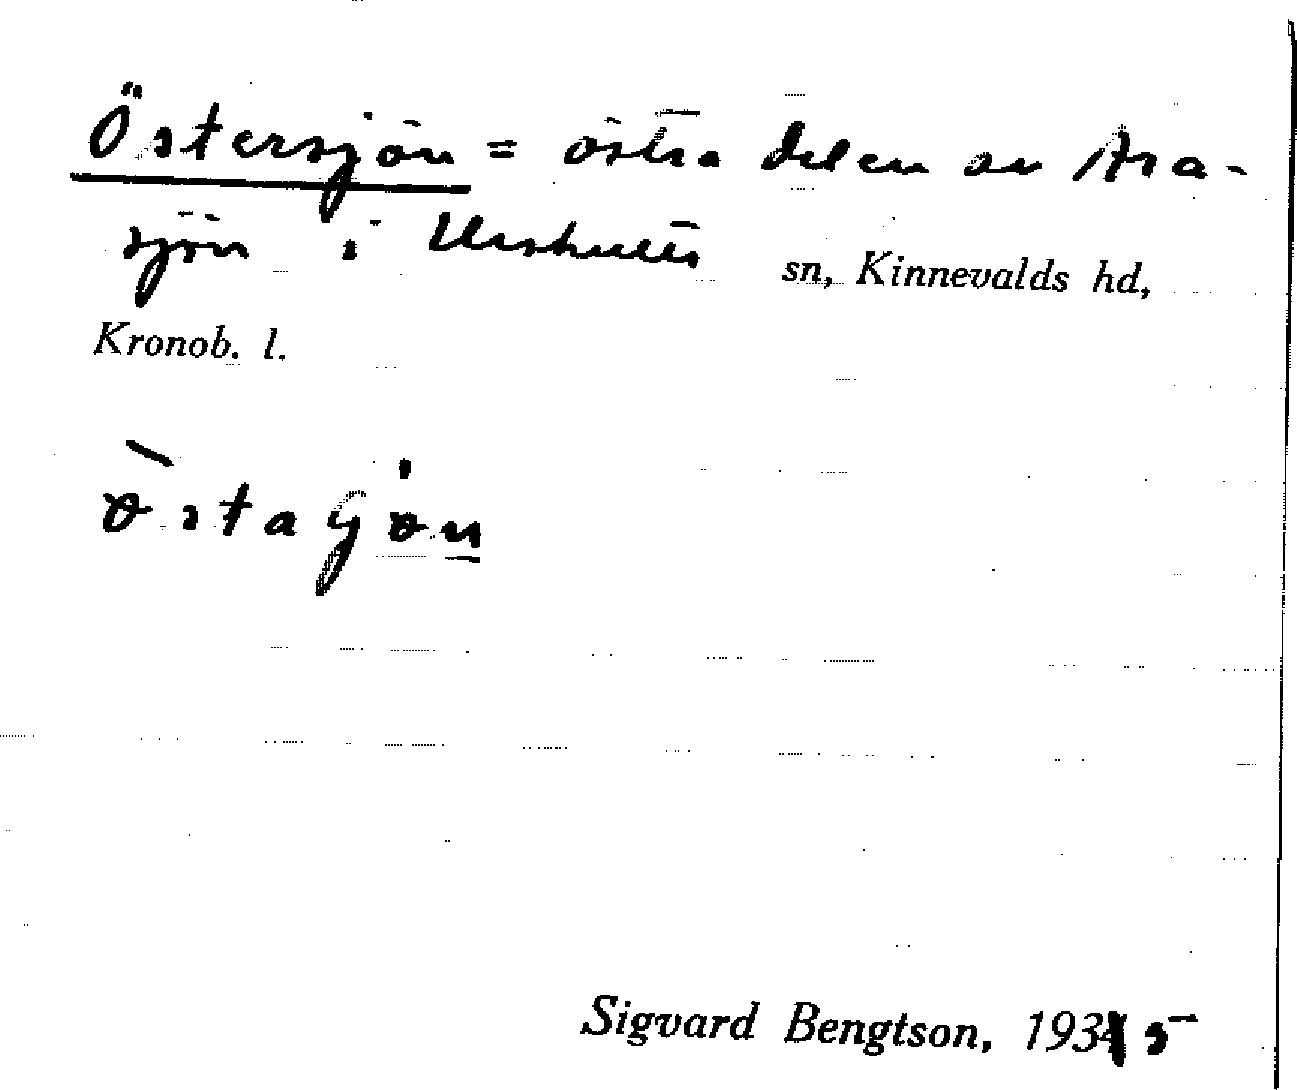 Östersjön = östra delen av Åra-
sjön i Urshults sn, Kinnevalds hd,
Kronob. l.
Sigvard Bengtson, 1935